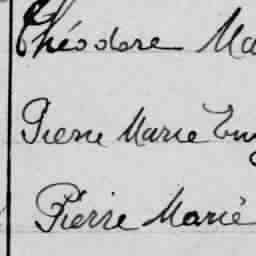 Théodore Ma
Pierre Marie Eug
Pierre Marie